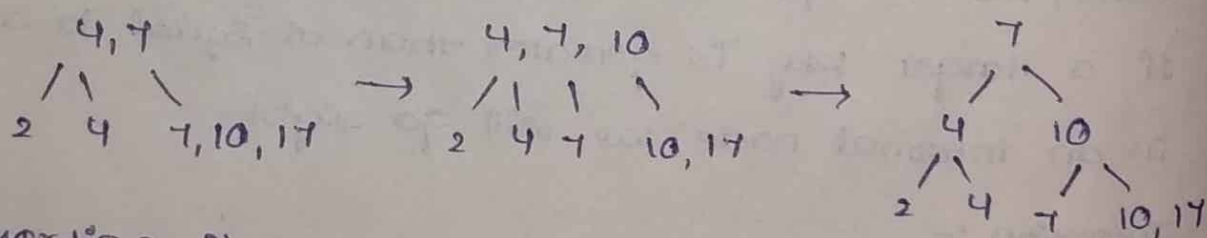 4, 7 → 4, 7, 10 → 7
2 4 7, 10, 17
2 4 7 10, 17
4 10
2 4 7 10, 17